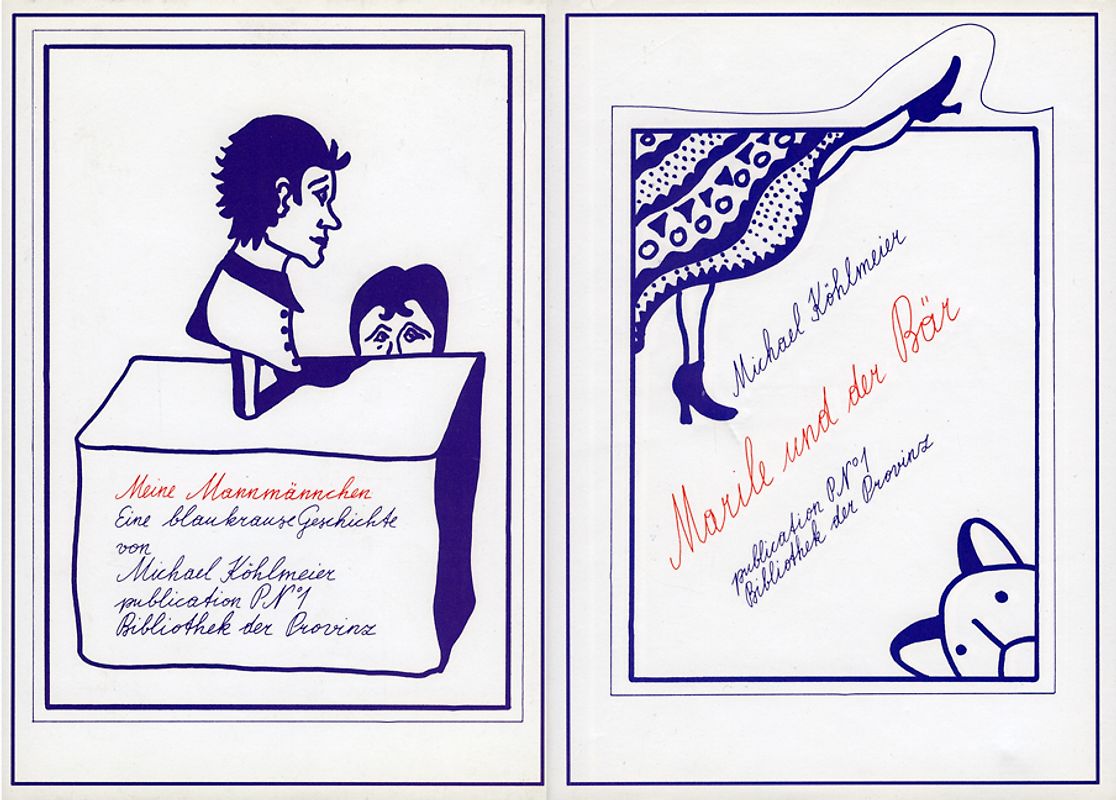 Meine Mannmännchen
Eine blaukrause Geschichte
von
Michael Köhlmeier
publication P.N°1
Bibliothek der Provinz
Michael Köhlmeier
Marile und der Bär
publication P.N°1
Bibliothek der Provinz